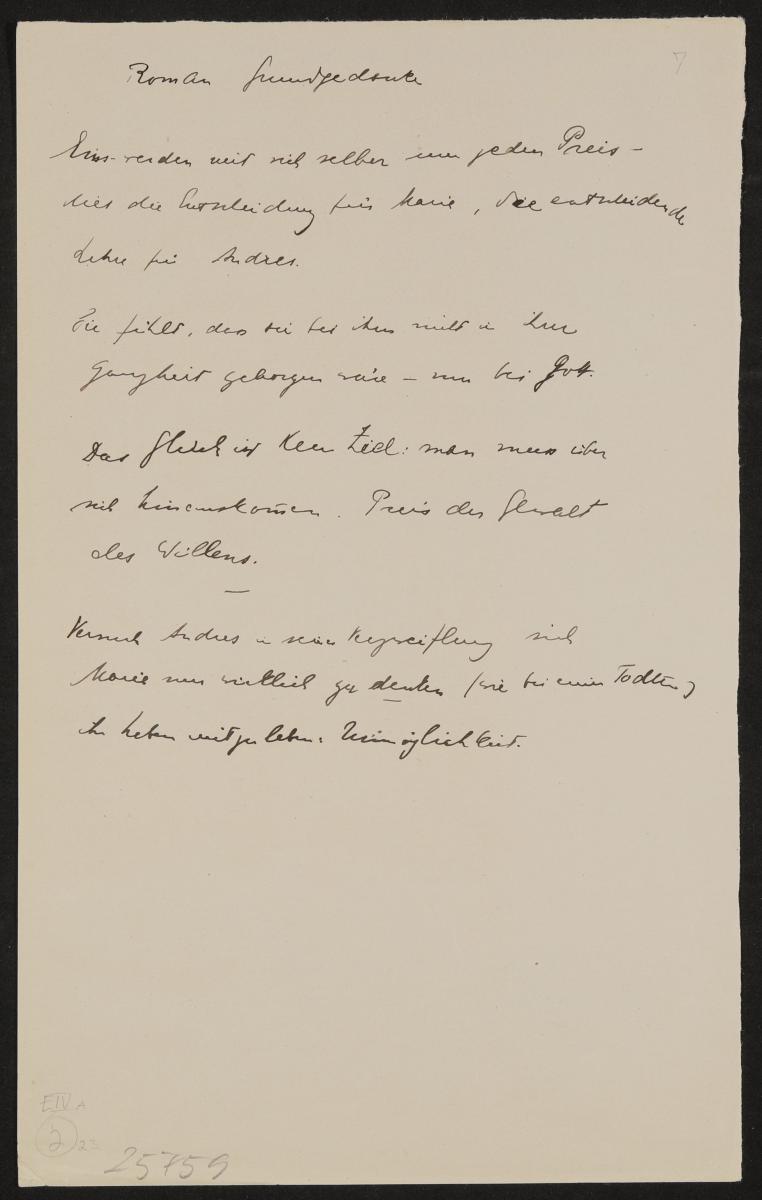 7
Roman Grundgedanke
Eins-werden mit sich selber um jeden Preis –
dies die Entscheidung für Marie, die entscheidende
Lehre für Andres.
Sie fühlt, dass sie bei ihm nicht in ihrer
Ganzheit geborgen wäre – nur bei Gott.
Das Glück ist kein Ziel: man muss über
sich hinauskom̄en. Preis der Gewalt
des Willens.
—
Versuch Andres in seiner Verzweiflung sich
Marie nun wirklich zu denken (wie bei einem Todten)
ihr Leben mitzuleben: Unmöglichkeit.
EIV A
2 23
25759